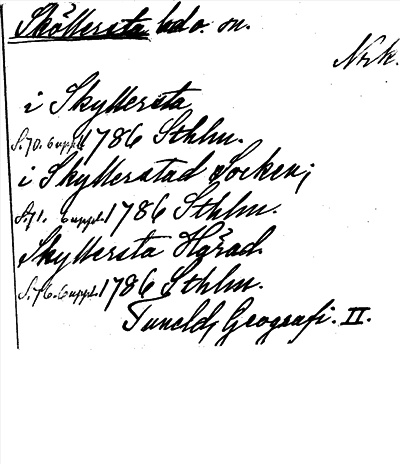 Sköllersta hd o. sn.
Nrk.
i Skyllersta
S. 70. 6 uppl. 1786 Sthlm.
i Skyllerstad Socken;
S. 71. 6 uppl. 1786 Sthlm.
Skyllersta Härad.
S. 76. 6 uppl. 1786 Sthlm.
Tunelds Geografi. II.